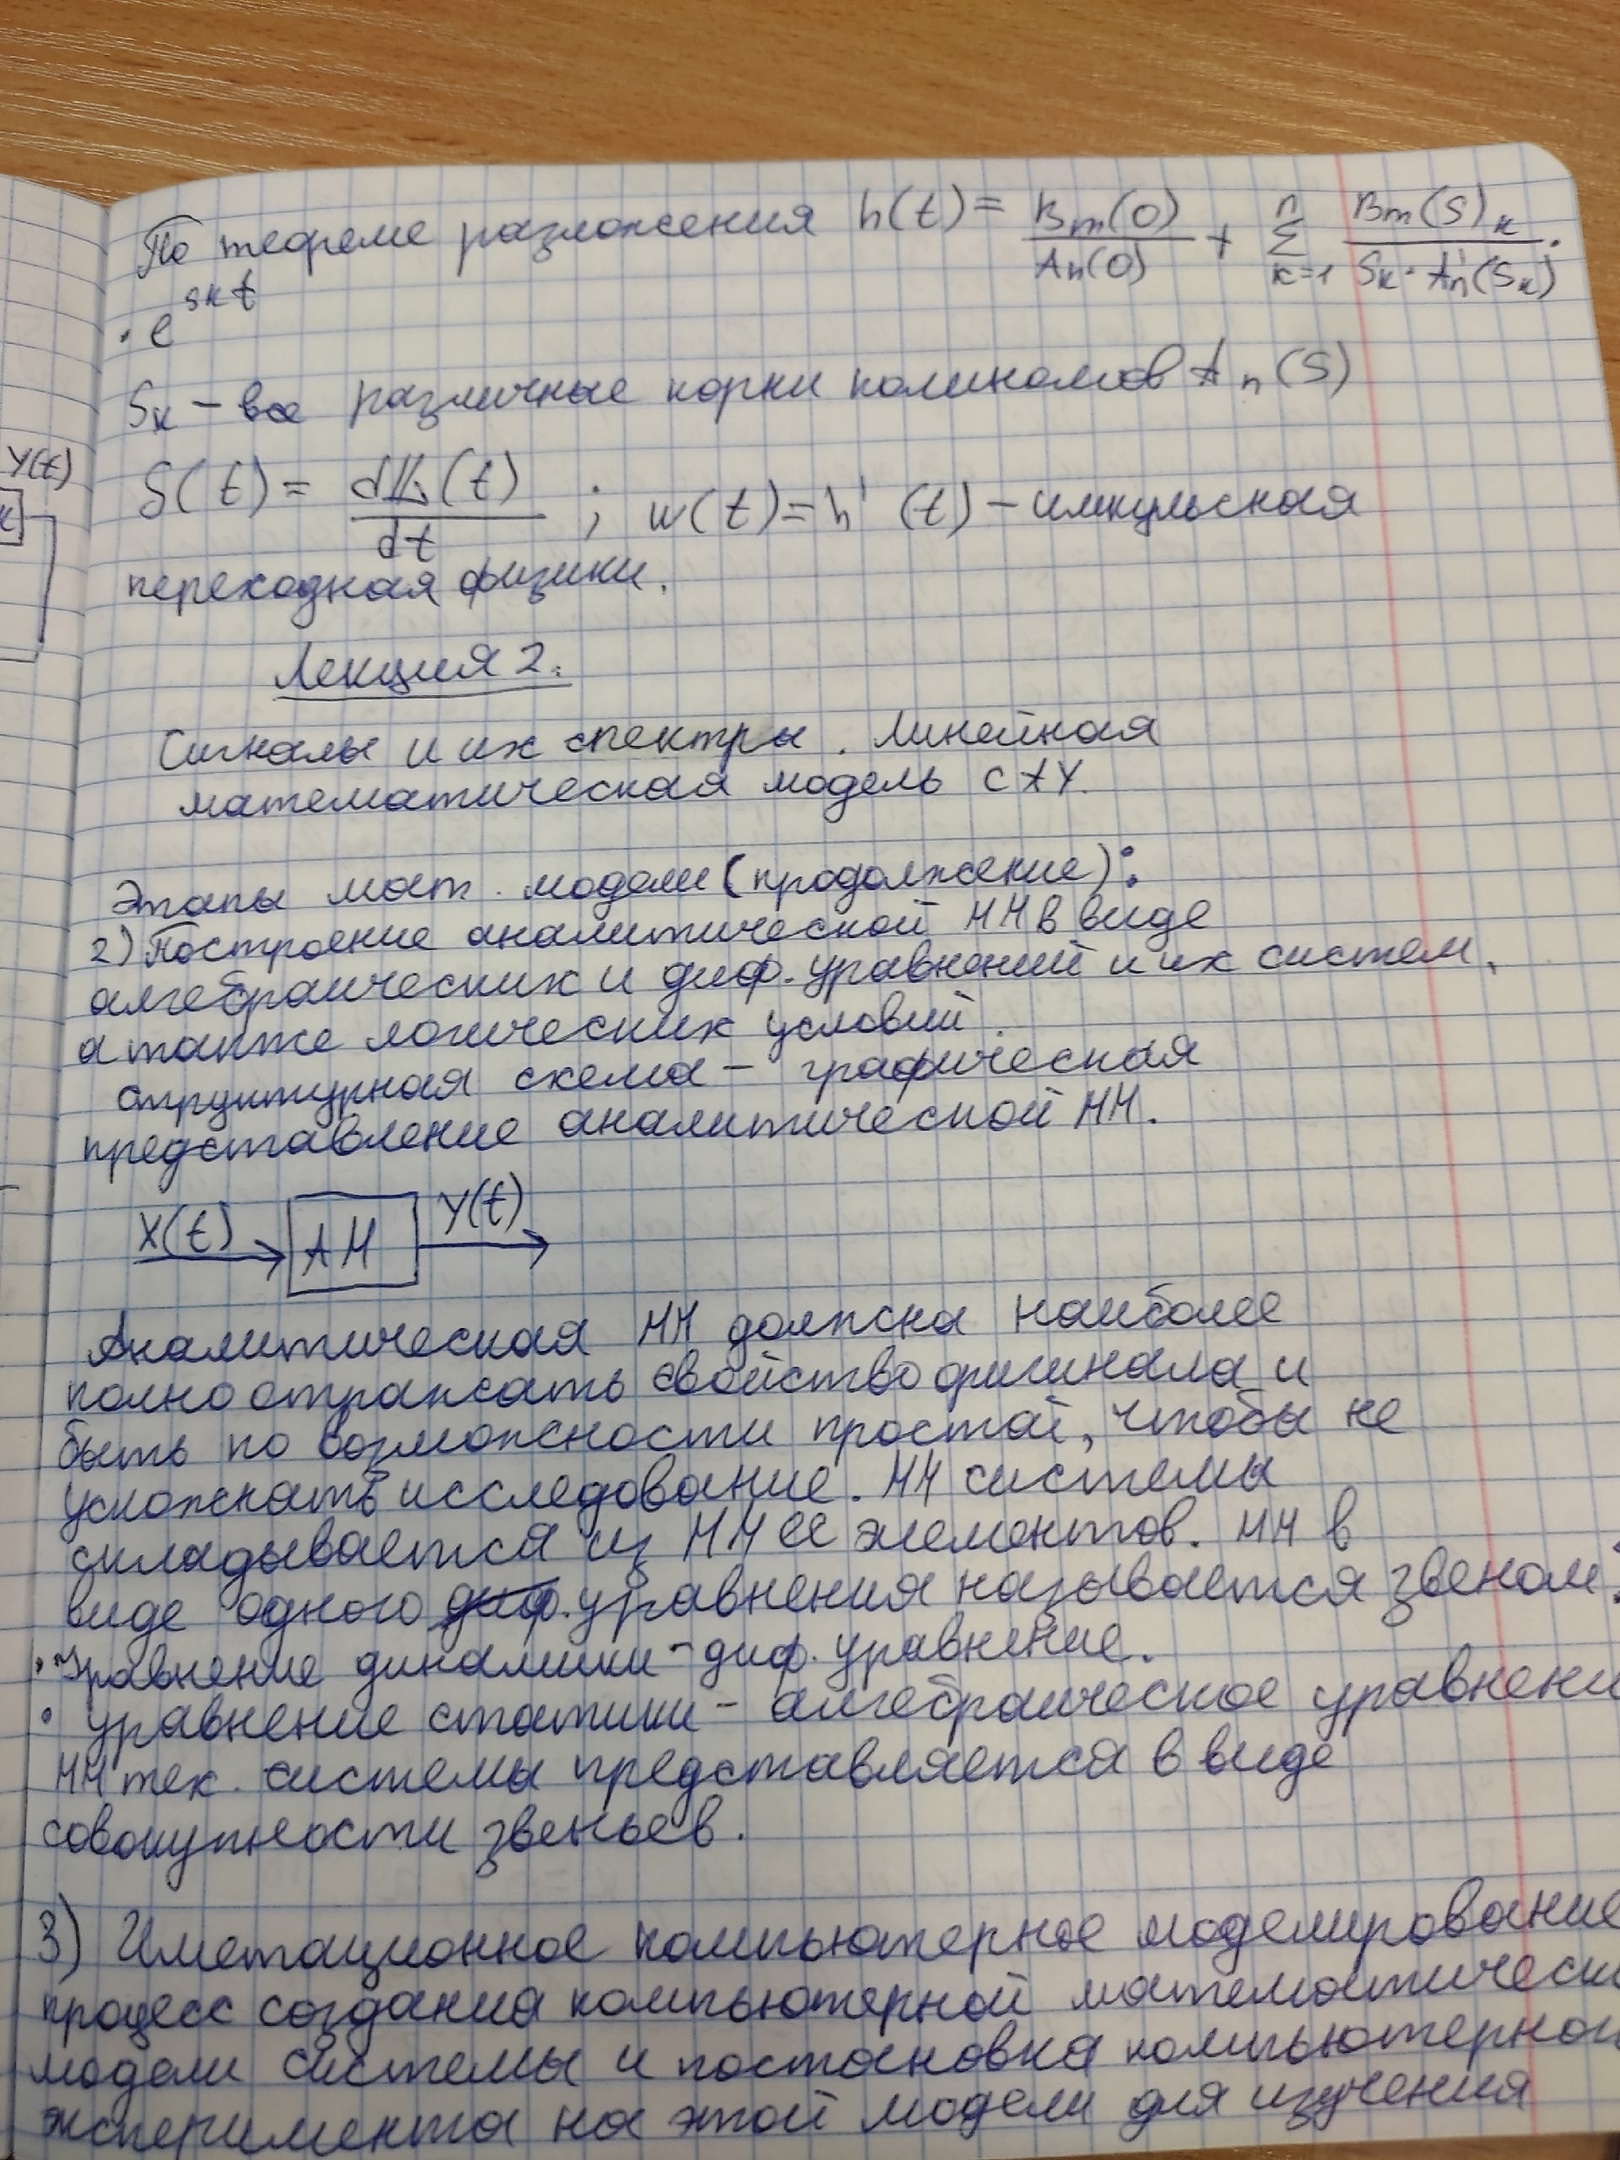 Y(t)
По теореме разложения h(t) = Bm(0)/An(0) + Σ(k=1..n) Bm(S)k/(Sk · An'(Sk)) ·
· e^(skt)
Sk – все различные корни полиномов An(S)
δ(t) = d1(t)/dt ; w(t) = h'(t) – импульсная
переходная физики.
Лекция 2.
Сигналы и их спектры. Линейная
математическая модель САУ.
Этапы мат. модели (продолжение):
2) Построение аналитической ММ в виде
алгебраических и диф. уравнений и их систем,
а также логических условий.
Структурная схема – графическая
представление аналитической ММ.
X(t) АМ Y(t)
Аналитическая ММ должна наиболее
полно отражать свойство оригинала и
быть по возможности простой, чтобы не
усложнать исследование. ММ системы
складывается из ММ ее элементов. ММ в
виде одного диф. уравнения называется звеном:
• Уравнение динамики – диф. уравнение.
• уравнение статики – алгебраическое уравнени
ММ тех. системы представляется в виде
совокупности звеньев.
3) Иметационное компьютерное моделирование
процесс создания компьютерной математическ
модели системы и постановка компьютерног
эксперимента на этой модели для изучения